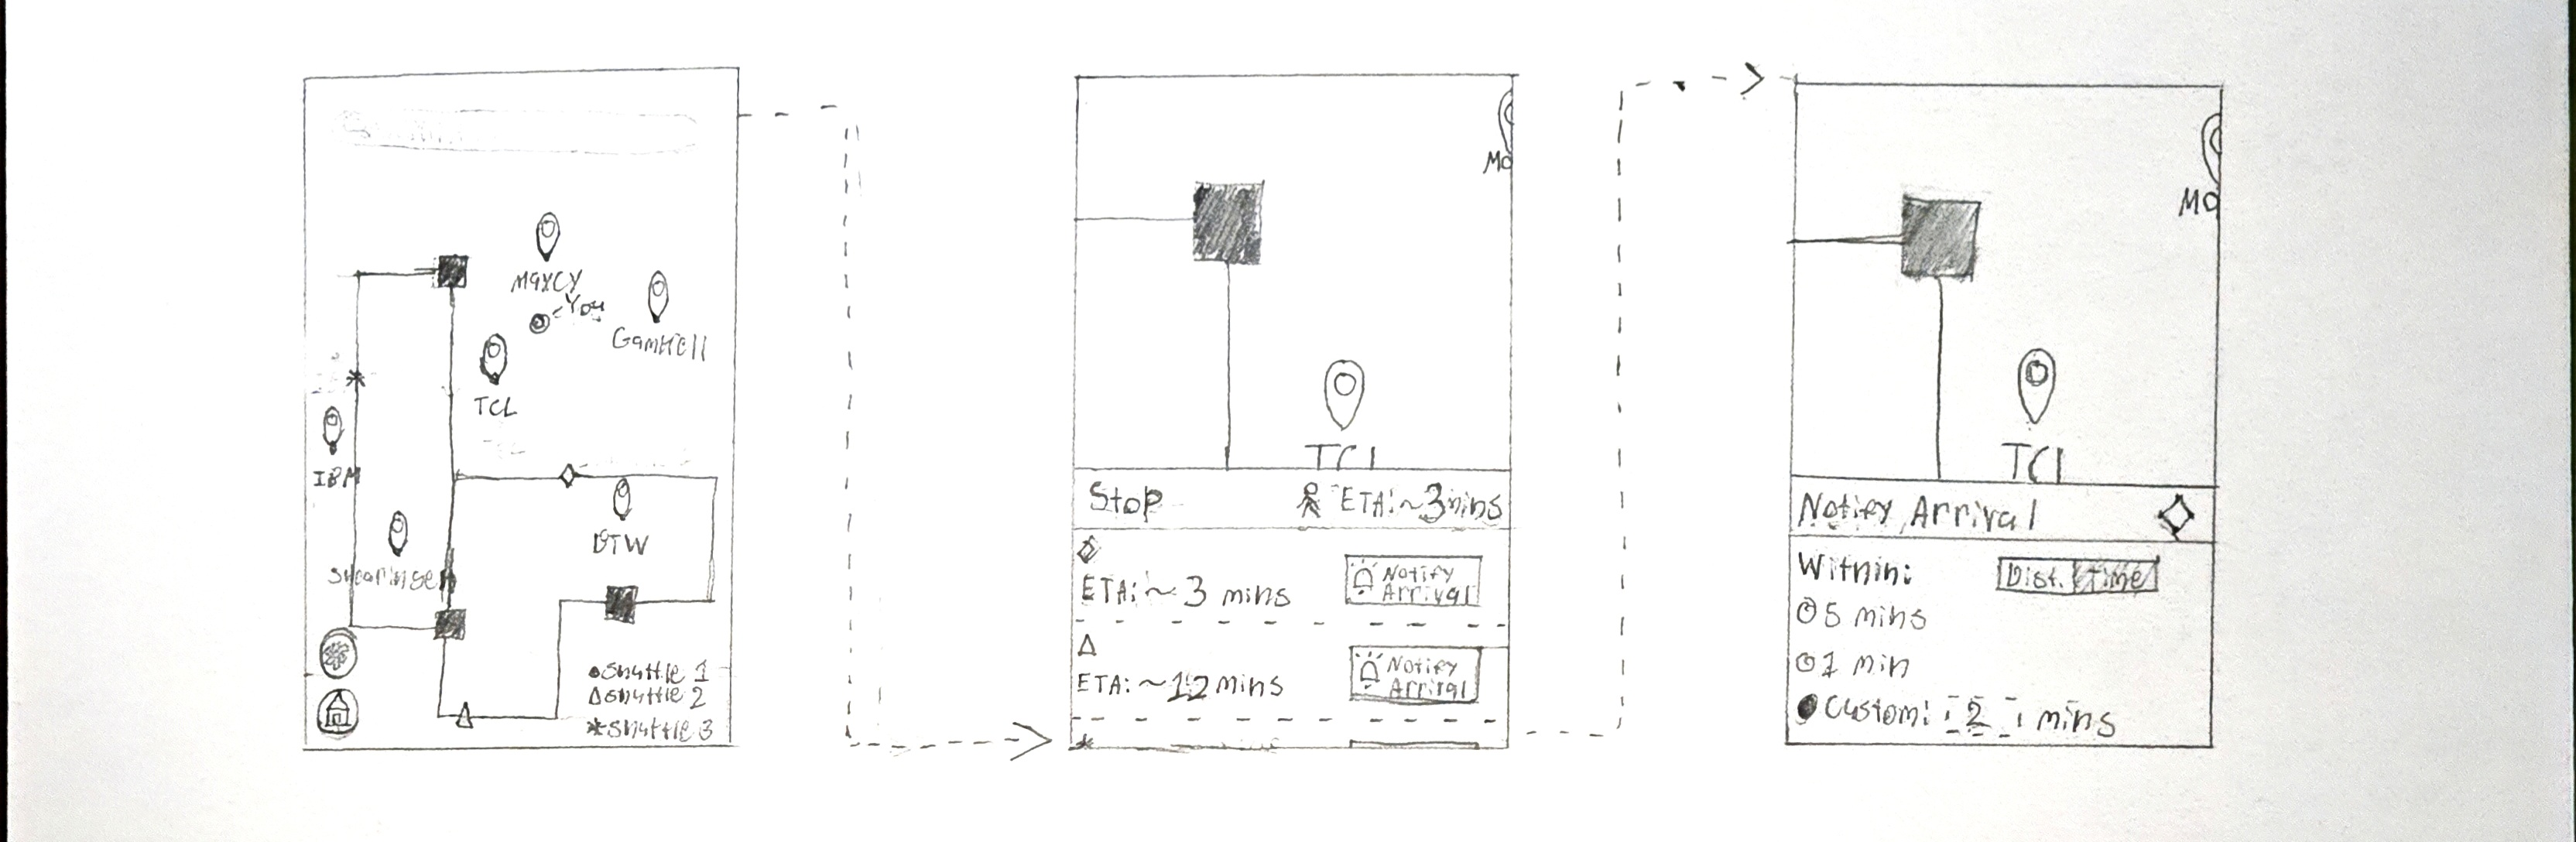 Maxcy
You
Gambrell
TCL
IBM
Swearingen
DTW
Shuttle 1
Shuttle 2
Shuttle 3
Ma
TCL
Stop
ETA: ~3mins
ETA: ~ 3 mins
Notify
Arrival
ETA: ~12 mins
Notify
Arrival
Ma
TCL
Notify Arrival
Within:
Dist. Time
5 mins
1 min
Custom: 2 mins